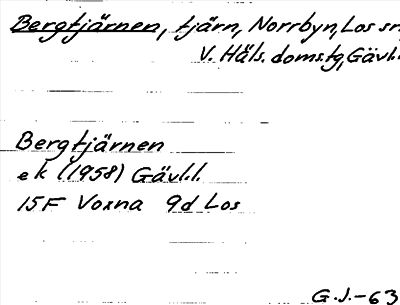 Bergtjärnen, tjärn, Norrbyn, Los sn
V. Häls. doms.tg, Gävl.l.
Bergtjärnen
ek (1958) Gävl.l.
15F Voxna 9d Los
G.J.-63